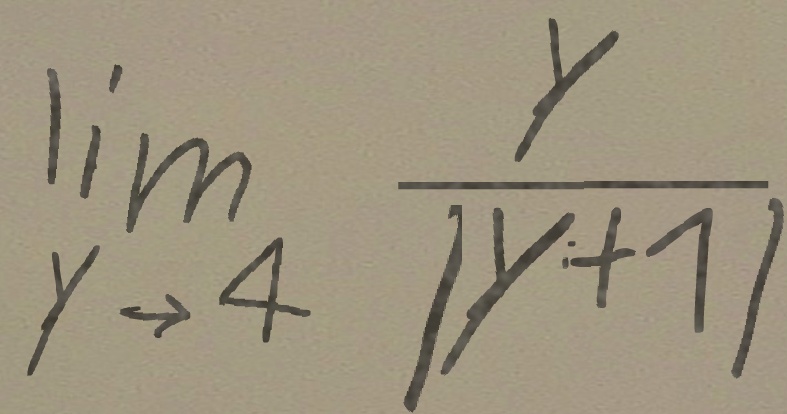 lim y→4 y / |y+1|